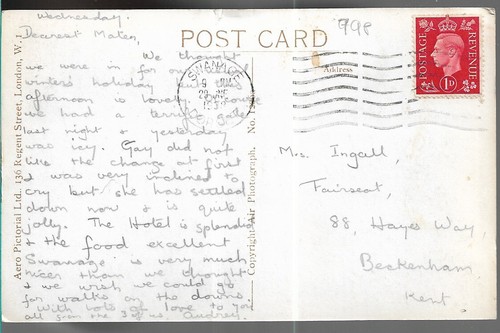 Wednesday.
Dearest Mater,
We thought
we were in for our usual
winter's holiday but this
afternoon is lovely. Of course
we had a terrific gale
last night & yesterday
was icy. Gay did not
like the change at first
& was very inclined to
cry but she has settled
down now & is quite
jolly. The Hotel is splendid
& the food excellent
Swanage is very much
nicer than we thought
& we wish we could go
for walks on the downs.
With lots of love to you
all from the 3 of us. Audrey.
POST CARD
998
Address
SWANAGE
POSTAGE
REVENUE
1D
Mrs. Ingall,
Fairseat,
88, Hayes Way,
Beckenham
Kent
Aero Pictorial Ltd., 136 Regent Street, London, W.1.
Copyright Air Photograph. No.